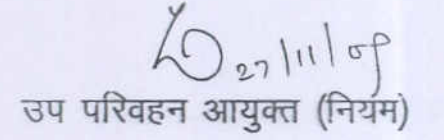 27/11/09
उप परिवहन आयुक्त (नियम)